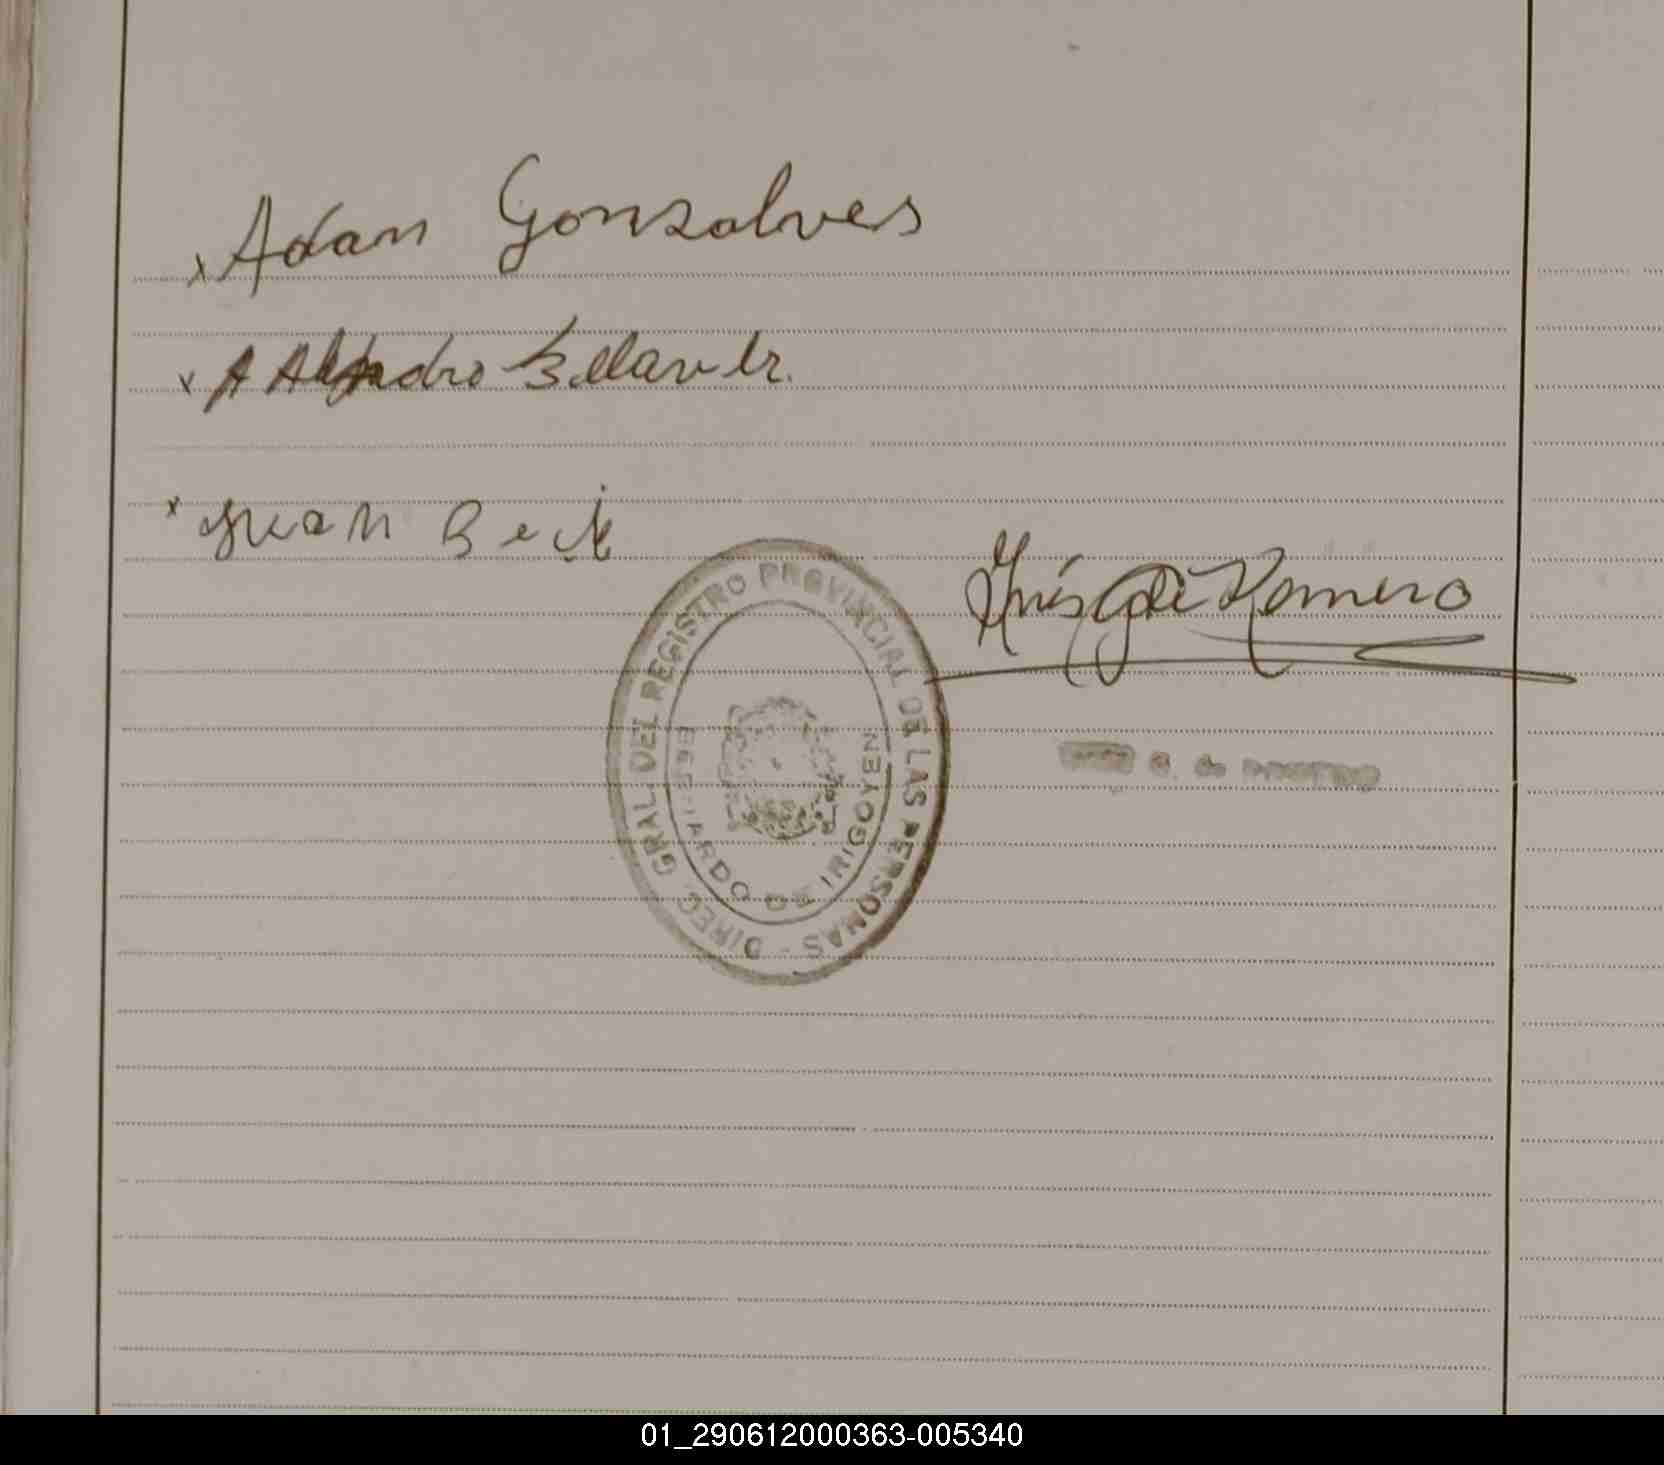 x Adan Gonsalves
x A Alejandro
x Juan Beck
Inés G de Romero
DIREC. GRAL. DEL REGISTRO PROVINCIAL DE LAS PERSONAS -
BERNARDO DE IRIGOYEN
G. de ROMERO
01_290612000363-005340